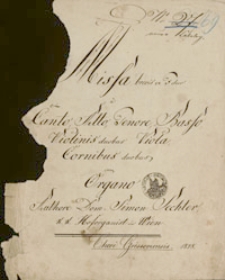 Missa brevis in D dur
Canto, Alto, Tenore, Basso
Violinis duobus Viola
Cornibus duobus,
Organo
Authore Dom. Simon Sechter
k. k. Hoforganist in Wien
Chori